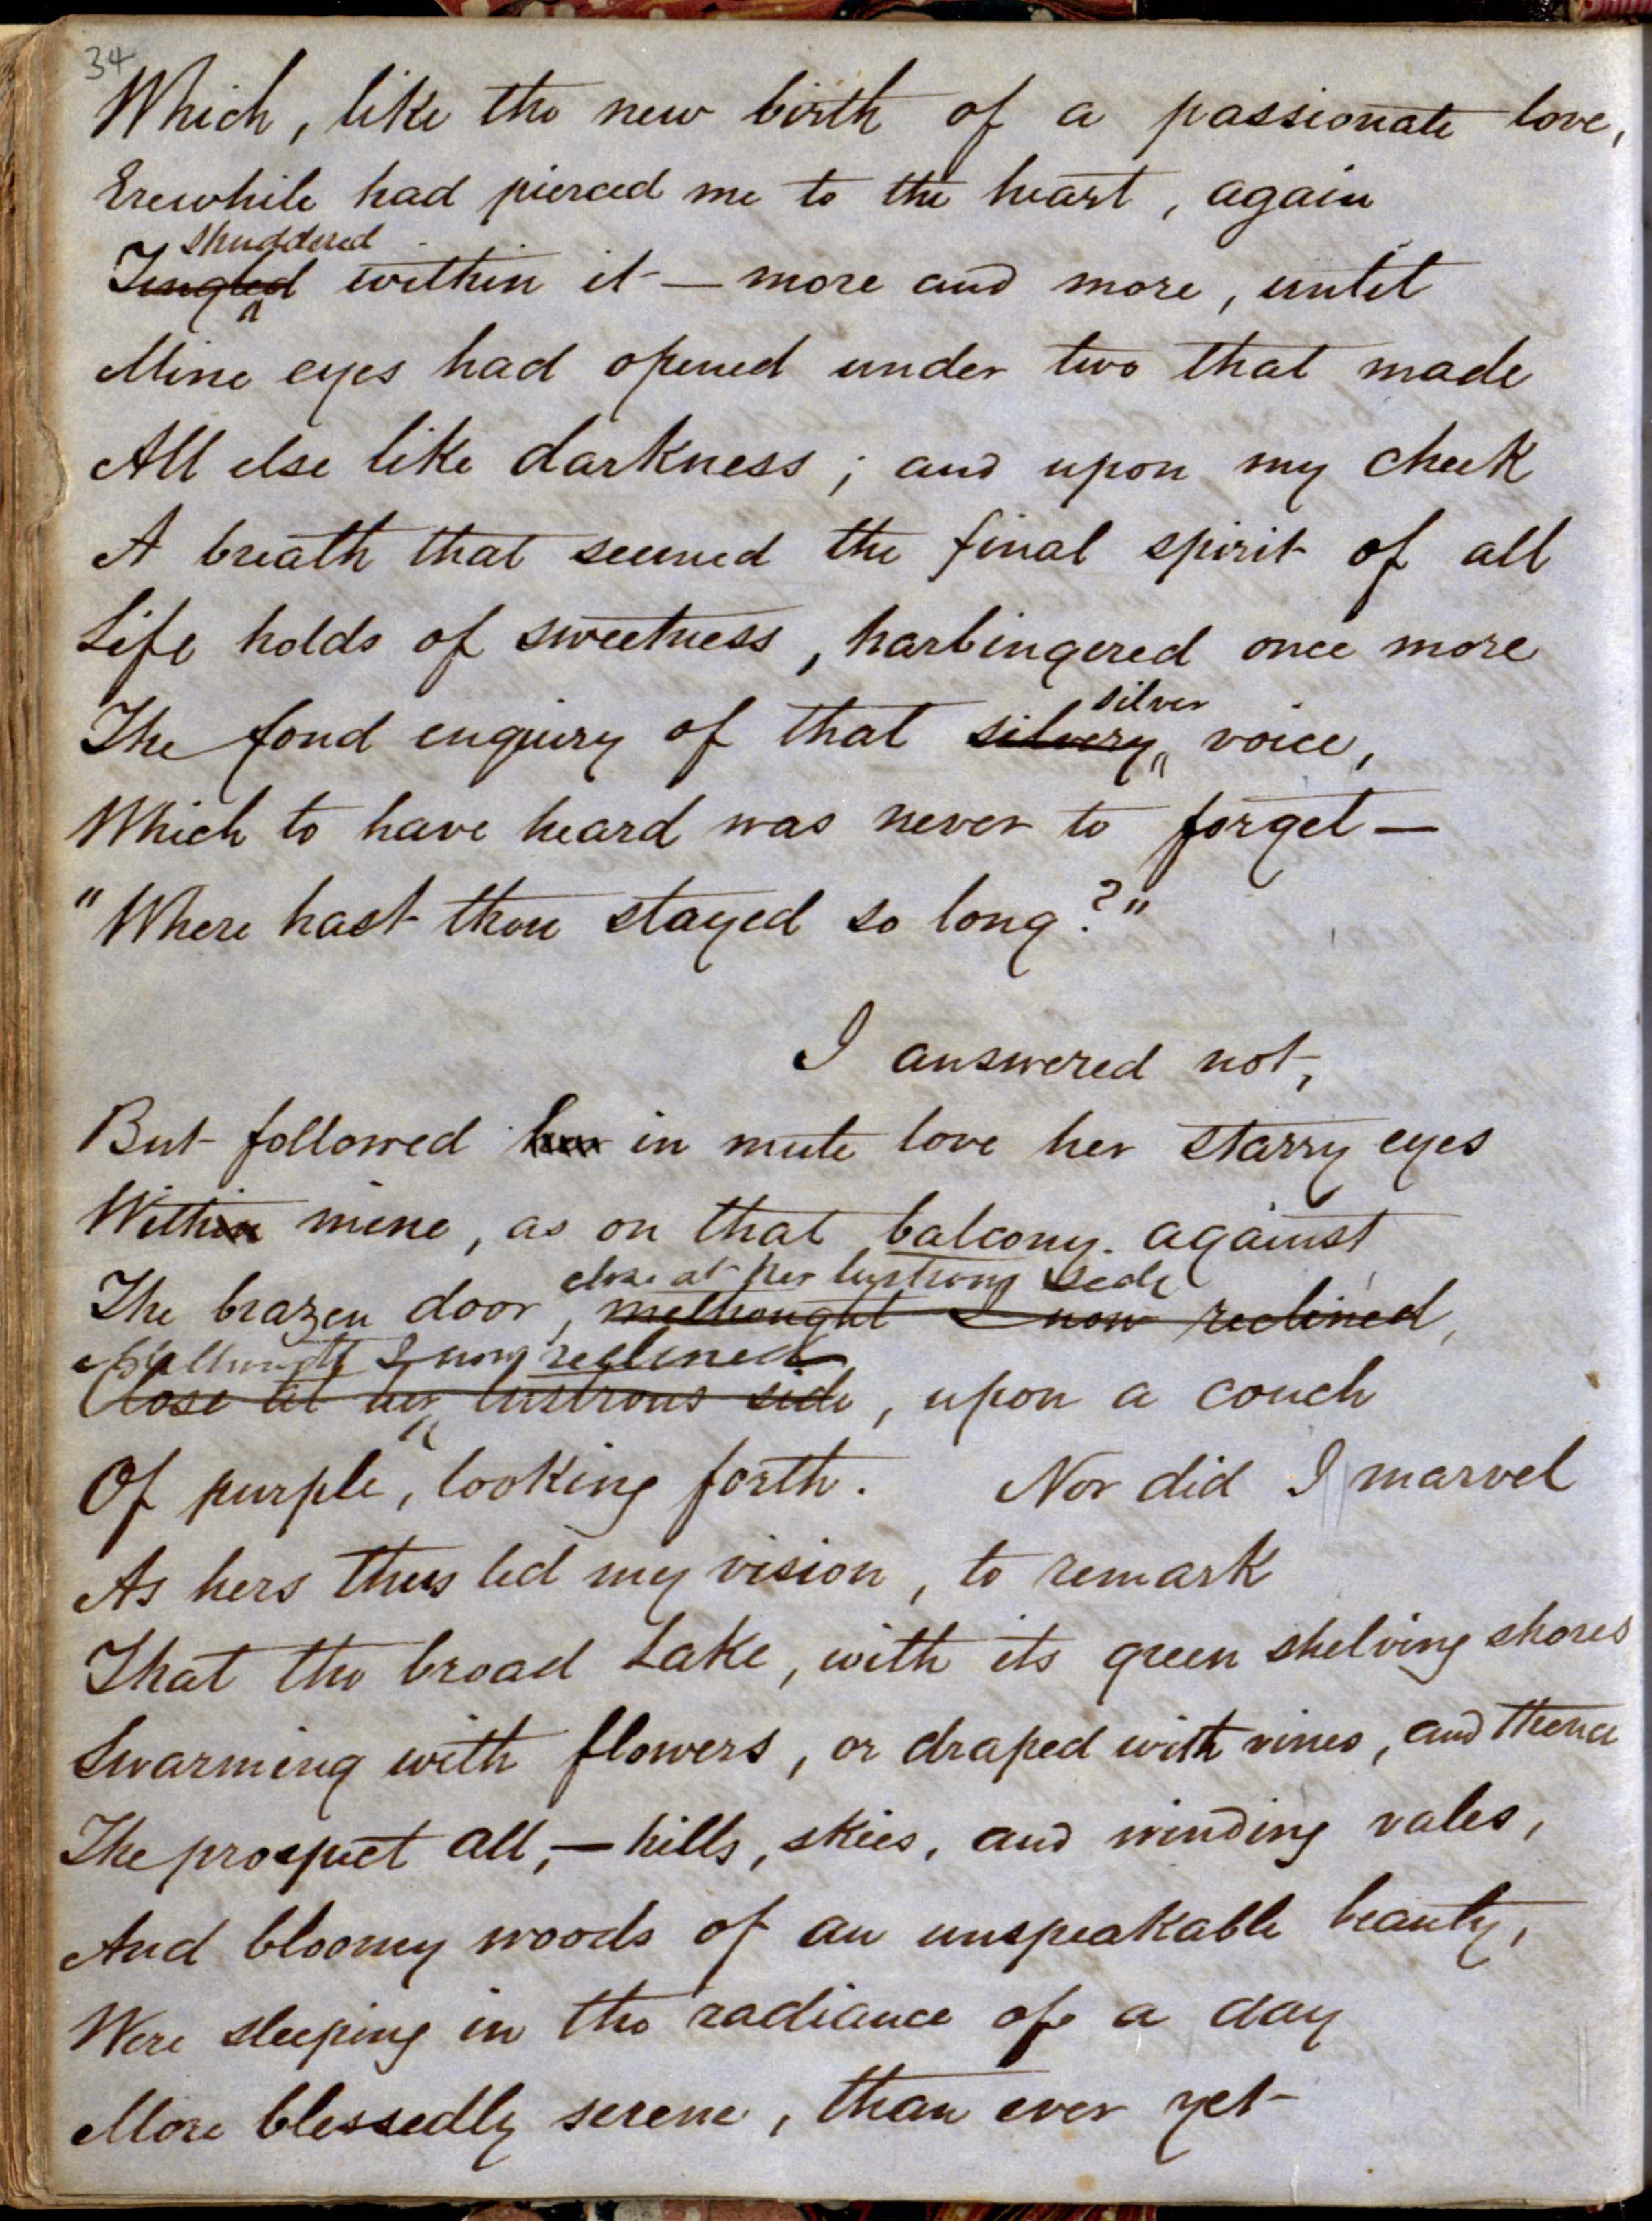 34
Which, like the new birth of a passionate love,
Erewhile had pierced me to the heart, again
shuddered
Tingled within it — more and more, until
Mine eyes had opened under two that made
All else like darkness; and upon my cheek
A breath that seemed the final spirit of all
Life holds of sweetness, harbingered once more
silver
The fond enquiry of that silvery voice,
Which to have heard was never to forget —
"Where hast thou stayed so long?"
I answered not,
But followed her in mute love her starry eyes
Within mine, as on that balcony against
close at her lustrous side
The brazen door, methought I now reclined,
Methought I now reclined
Close at her lustrous side, upon a couch
Of purple, looking forth. Nor did I marvel
As hers thus led my vision, to remark
That the broad Lake, with its green shelving shores
Swarming with flowers, or draped with vines, and thence
The prospect all, — hills, skies, and winding vales,
And bloomy woods of an unspeakable beauty,
Were sleeping in the radiance of a day
More blessedly serene, than ever yet